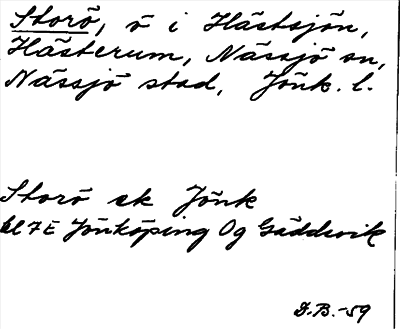 Storö, ö i Hästsjön,
Hästerum, Nässjö sn,
Nässjö stad, Jönk. l.
Storö ek Jönk
bl 7E Jönköping Og Gäddevik
G.B.-59